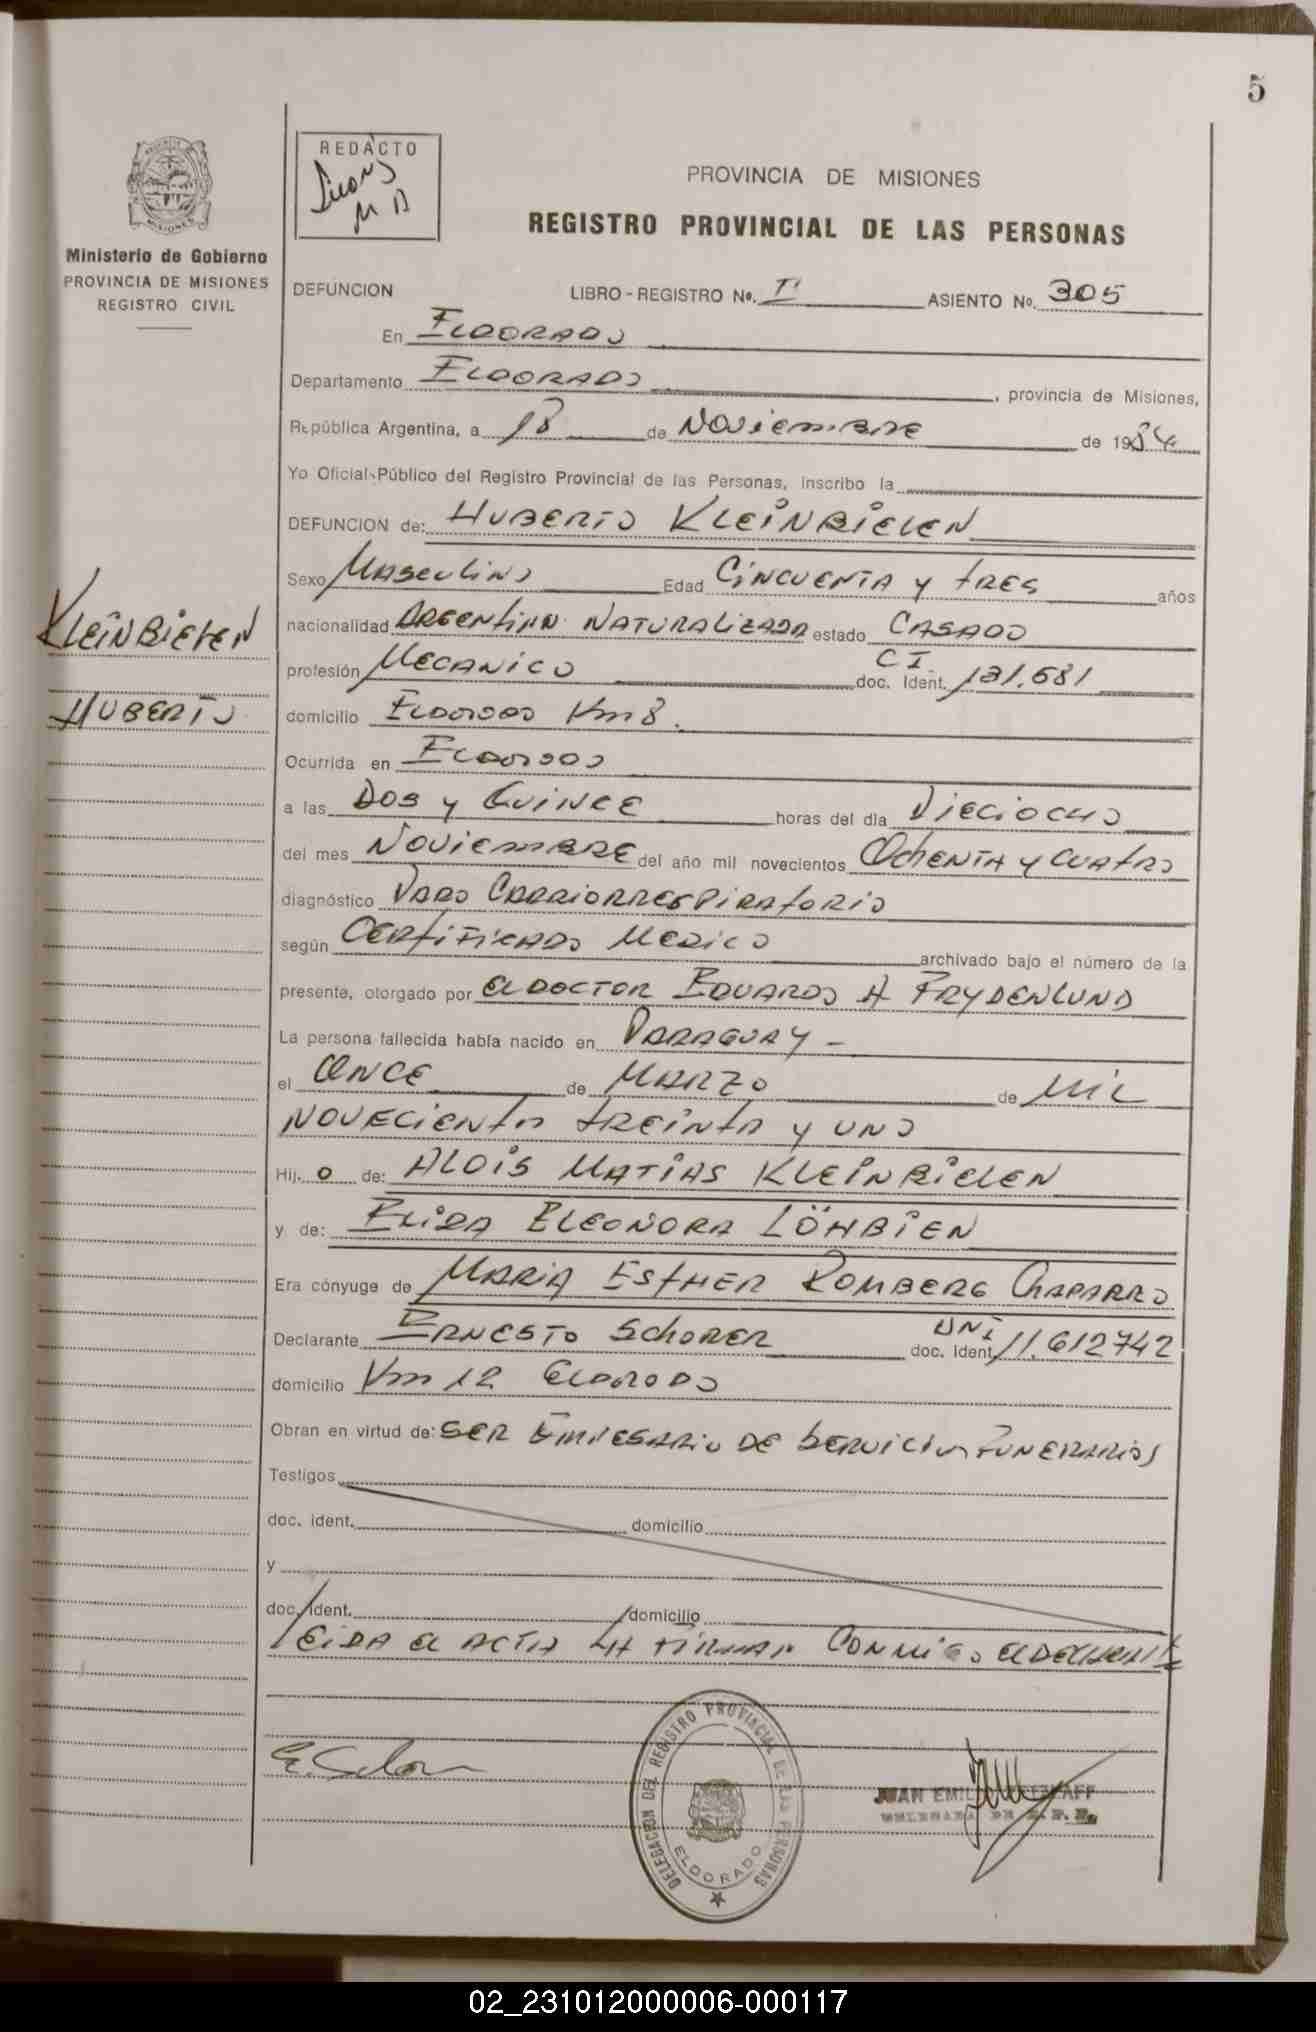 5
REDACTO
PROVINCIA DE MISIONES
REGISTRO PROVINCIAL DE LAS PERSONAS
Ministerio de Gobierno
PROVINCIA DE MISIONES
REGISTRO CIVIL
DEFUNCION LIBRO - REGISTRO No. I ASIENTO No. 305
En ELDORADO
Departamento ELDORADO, provincia de Misiones,
República Argentina, a 18 de NOVIEMBRE de 1984
Yo Oficial Público del Registro Provincial de las Personas, inscribo la
DEFUNCION de: HUBERTO KLEINBIELEN
Sexo MASCULINO Edad CINCUENTA Y TRES años
KLEINBIELEN
HUBERTO
nacionalidad ARGENTINA NATURALIZADA estado CASADO
profesión MECANICO doc. Ident. C I. 131.681
domicilio ELDORADO Km 8.
Ocurrida en ELDORADO
a las DOS y QUINCE horas del día DIECIOCHO
del mes NOVIEMBRE del año mil novecientos OCHENTA Y CUATRO
diagnóstico PARO CARDIORRESPIRATORIO
según CERTIFICADO MEDICO archivado bajo el número de la
presente, otorgado por EL DOCTOR EDUARDO A FRYDENLUND
La persona fallecida había nacido en PARAGUAY -
el ONCE de MARZO de MIL
NOVECIENTO TREINTA Y UNO
Hij. o de: ALOIS MATIAS KLEINBIELEN
y de: ELIDA ELEONORA LÖHBIEN
Era cónyuge de MARIA ESTHER ROMBERG CHAPARRO
Declarante ERNESTO SCHORER doc. Ident. DNI 11.612742
domicilio Km 12 ELDORADO
Obran en virtud de: SER EMPRESARIO DE SERVICIOS FUNERARIOS
Testigos
doc. ident. domicilio
y
doc. ident. domicilio
LEIDA EL ACTA LA FIRMAN CONMIGO EL DECLARANTE
DELEGACION DEL REGISTRO PROVINCIAL DE LAS PERSONAS
ELDORADO
JUAN EMIL
02_231012000006-000117